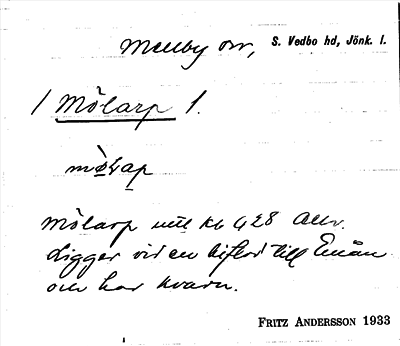 Mellby sn, S. Vedbo hd, Jönk. l.
/ Mölarp 1.
Mölarp Kb 428
Ligger vid en biflod till Emån
och har kvarn.
FRITZ ANDERSSON 1933